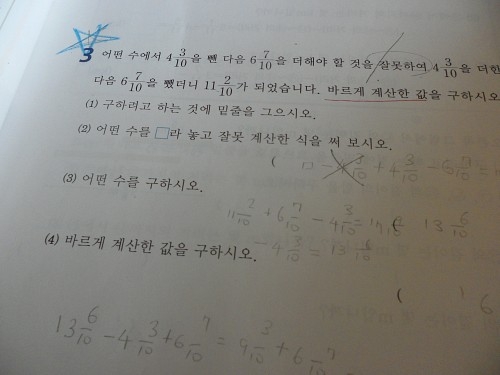 3 어떤 수에서 4 3/10을 뺀 다음 6 7/10을 더해야 할 것을 잘못하여 4 3/10을 더한
다음 6 7/10을 뺐더니 11 2/10가 되었습니다. 바르게 계산한 값을 구하시오
(1) 구하려고 하는 것에 밑줄을 그으시오.
(2) 어떤 수를 □라 놓고 잘못 계산한 식을 써 보시오.
( □ - 4 3/10 + 4 3/10 - 6 7/10 =
(3) 어떤 수를 구하시오.
11 2/10 + 6 7/10 - 4 3/10 = 13 6/10
- 4 3/10 = 13 6/10
(4) 바르게 계산한 값을 구하시오.
( 16
13 6/10 - 4 3/10 + 6 7/10 = 9 3/10 + 6 7/10